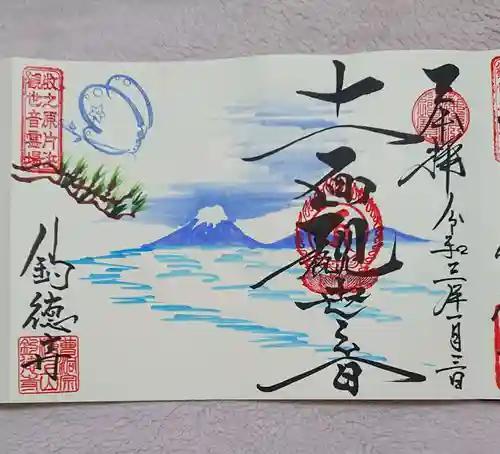 奉拝
令和二年一月三日
十一面観世音
牧之原片浜
観世音霊場
釣徳寺